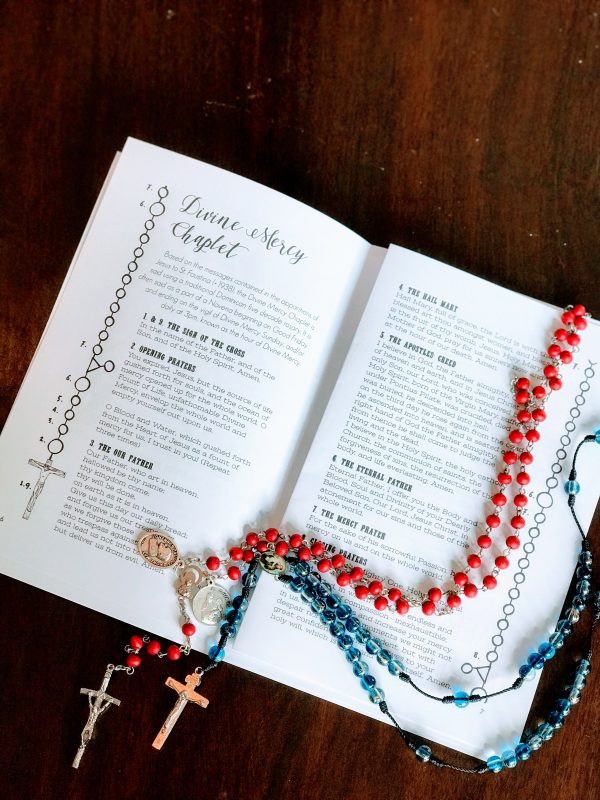 Divine Mercy
Chaplet
Based on the messages contained in the apparitions of
Jesus to St. Faustina (+1938), the Divine Mercy Chaplet is
said using a traditional Dominican five decade rosary. It
often said as a part of a Novena beginning on Good Friday
and ending on the vigil of Divine Mercy Sunday, and/or
daily at 3pm, known as the Hour of Divine Mercy.
1 & 9 THE SIGN OF THE CROSS
In the name of the Father, and of the
Son, and of the Holy Spirit. Amen.
2 OPENING PRAYERS
You expired, Jesus, but the source of life
gushed forth for souls, and the ocean of
mercy opened up for the whole world. O
Fount of Life, unfathomable Divine
Mercy, envelop the whole world and
empty yourself out upon us.
O Blood and Water, which gushed forth
from the Heart of Jesus as a fount of
mercy for us, I trust in you! (Repeat
three times!)
3 THE OUR FATHER
Our Father, who art in heaven,
hallowed be thy name;
thy kingdom come,
thy will be done,
on earth as it is in heaven.
Give us this day our daily bread;
and forgive us our
as we forgive those
who trespass against
and lead us not into
but deliver us from evil. Amen.
7.
6.
7.
6.
5.
4.
3.
2.
1.9.
6
4 THE HAIL MARY
Hail Mary, full of grace, the Lord is with
blessed art thou amongst
Mother of God, pray for us
hour of our death. Amen.
5 THE APOSTLES CREED
I believe in God, the Father almighty
only Son, our Lord, who was conceived
Holy Spirit, born of the Virgin Mary,
under Pontius Pilate, was
was buried. He descended into
on the third day he rose again from the
he ascended into heaven, and is
hand of God the Father
from thence he shall come to judge the
living and the dead.
I believe in the Holy Spirit, the holy catholic
Church, the communion of saints, the
forgiveness of sins, the resurrection of the
body, and life everlasting. Amen.
6 THE ETERNAL FATHER
Eternal Father, I offer you the Body and
Blood, Soul and Divinity of your Dearly
Beloved Son, Our Lord, Jesus Christ, in
atonement for our sins and those of the
whole world.
7 THE MERCY PRAYER
For the sake of his sorrowful Passion,
mercy on us and on the whole world.
PRAYERS
endless and
inexhaustible,
increase your mercy
moments we might not
despair
great confidence
to your
holy will, which is
itself. Amen.
8.
7